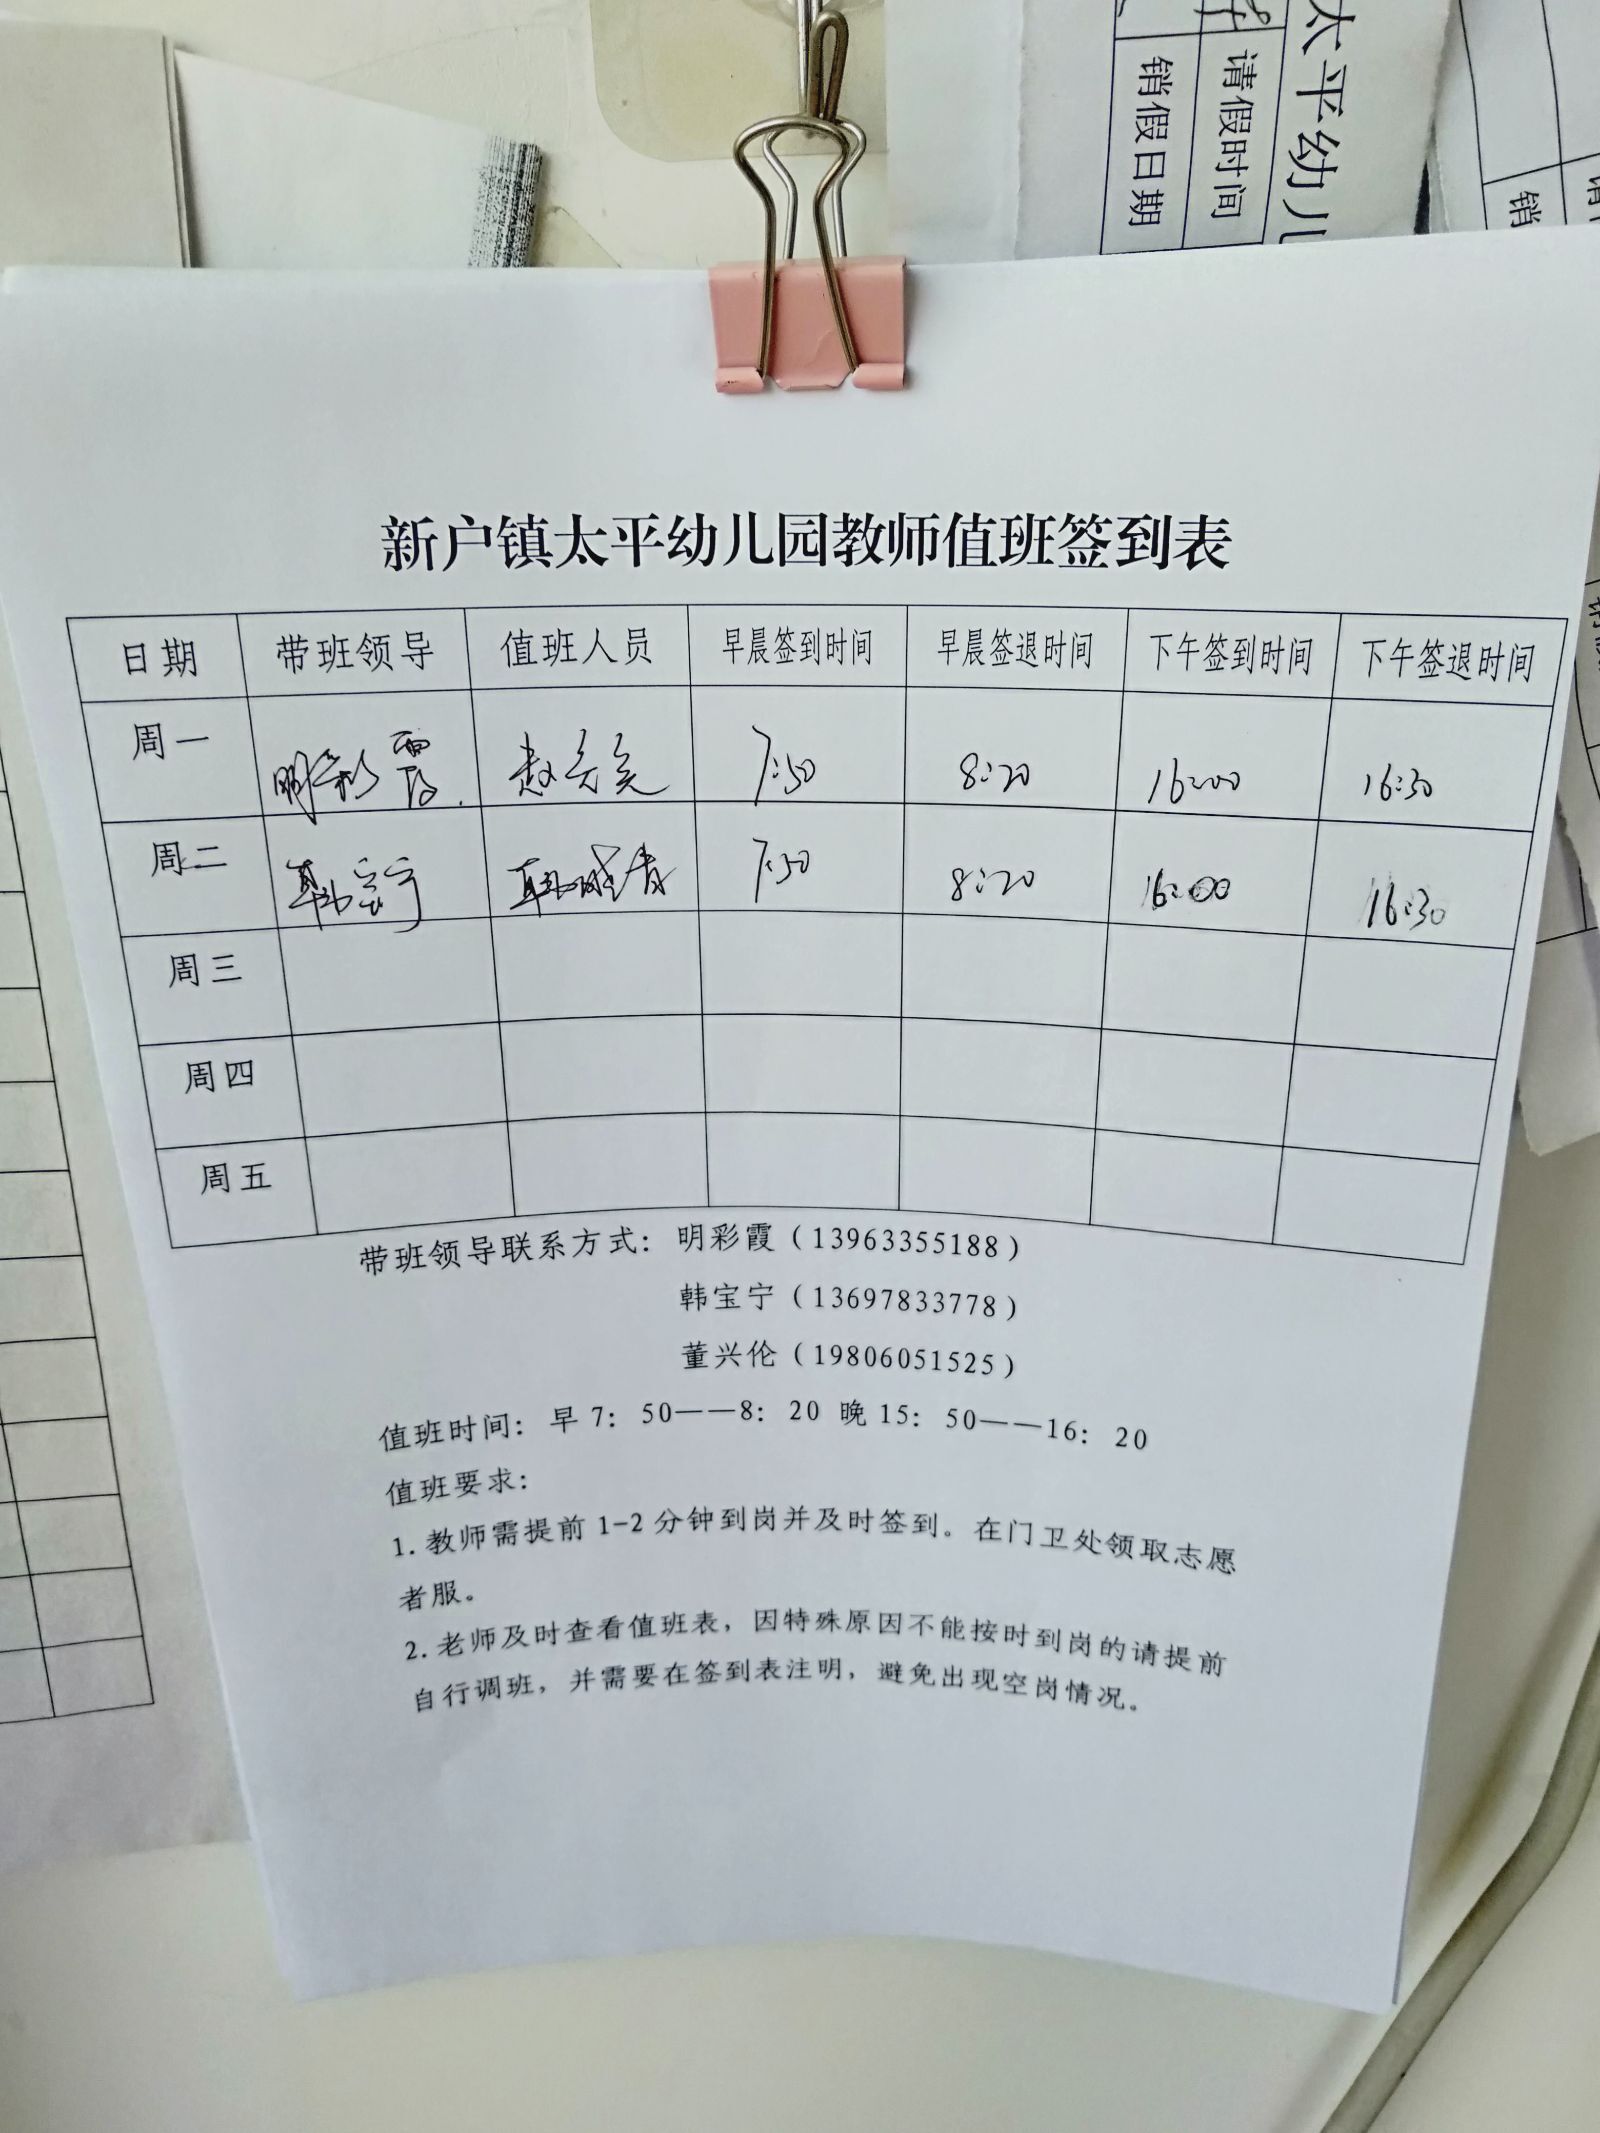 太平幼儿
请假时间
销假日期
销
新户镇太平幼儿园教师值班签到表
日期 带班领导 值班人员 早晨签到时间 早晨签退时间 下午签到时间 下午签退时间
周一 明彩霞 7:50 8:20 16:00 16:30
周二 韩宝宁 7:50 8:20 16:00 16:30
周三
周四
周五
带班领导联系方式：明彩霞（13963355188）
韩宝宁（13697833778）
董兴伦（19806051525）
值班时间：早7：50——8：20 晚15：50——16：20
值班要求：
1.教师需提前1-2分钟到岗并及时签到。在门卫处领取志愿
者服。
2.老师及时查看值班表，因特殊原因不能按时到岗的请提前
自行调班，并需要在签到表注明，避免出现空岗情况。